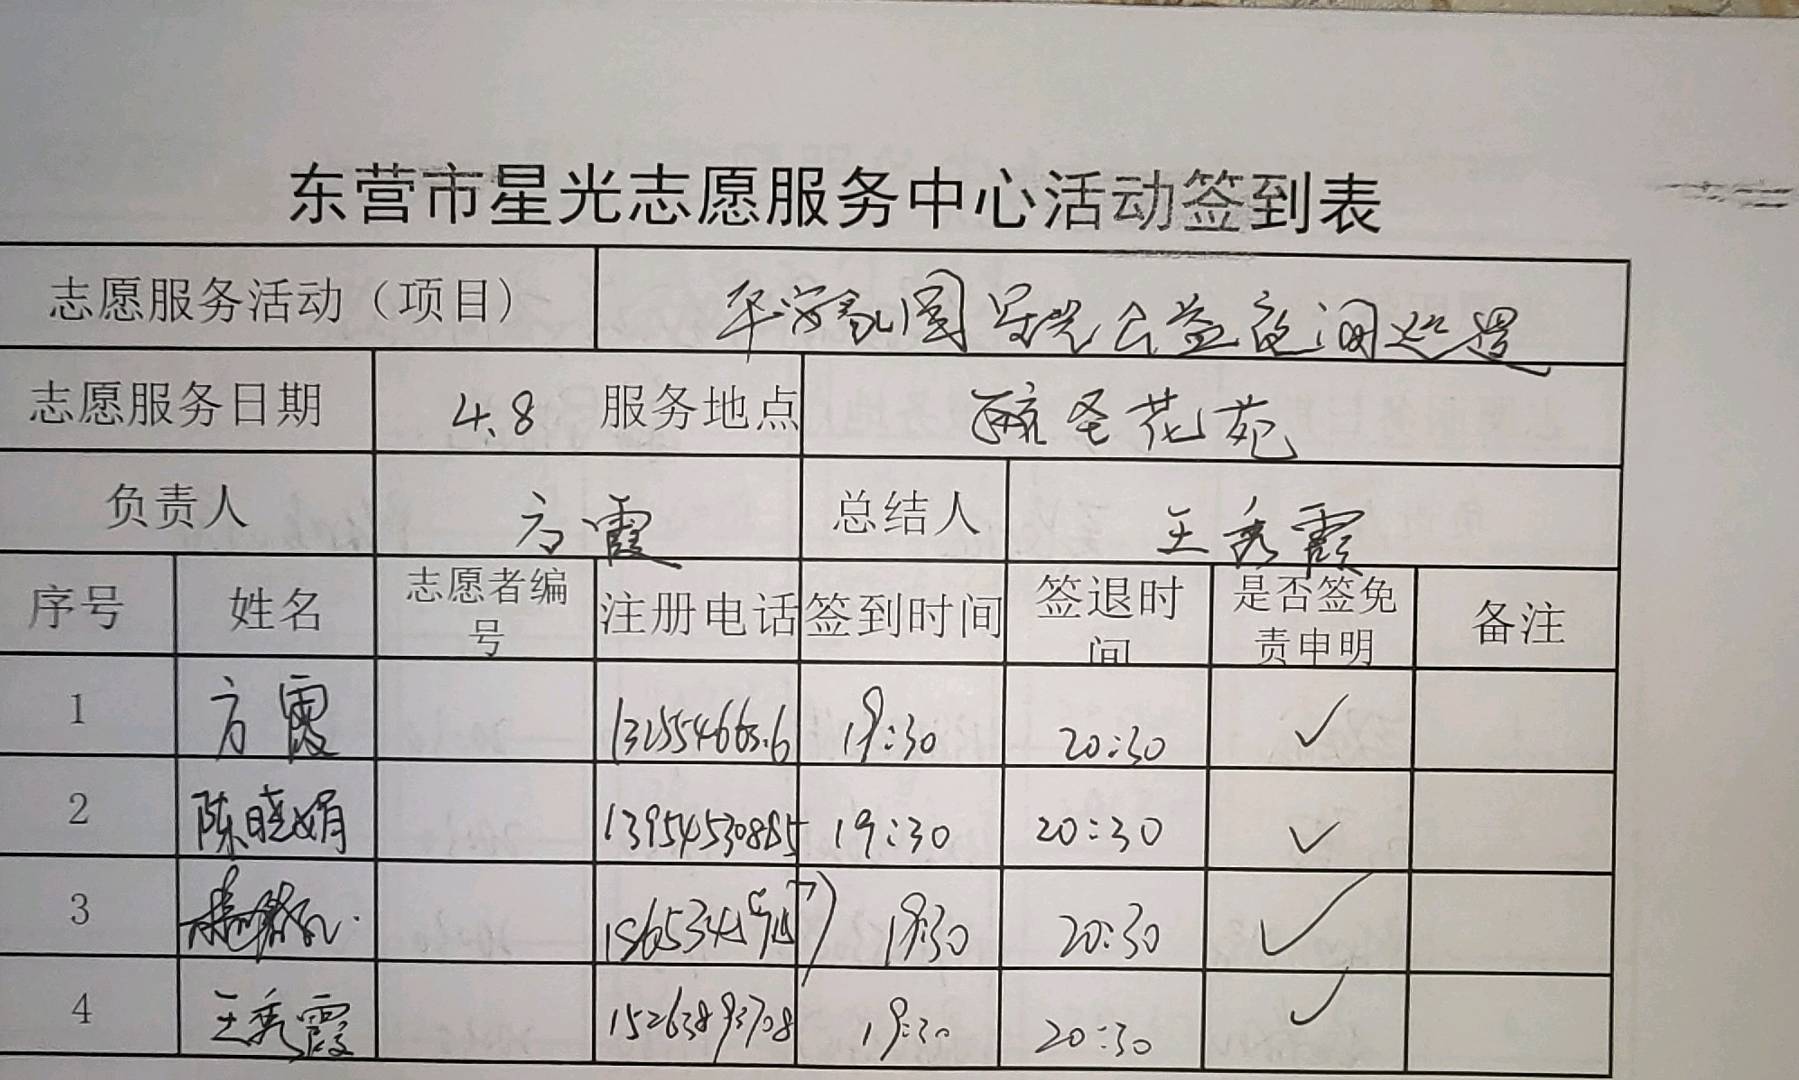 东营市星光志愿服务中心活动签到表
志愿服务活动（项目） 平安家园 星光公益夜间巡逻
志愿服务日期 4.8 服务地点 毓圣花苑
负责人 方霞 总结人 王秀霞
序号 姓名 志愿者编号 注册电话 签到时间 签退时间 是否签免责申明 备注
1 方霞 19:30 20:30 ✓
2 陈晓娟 13954530885 19:30 20:30 ✓
3 19:30 20:30 ✓
4 王秀霞 15263893708 19:30 20:30 ✓